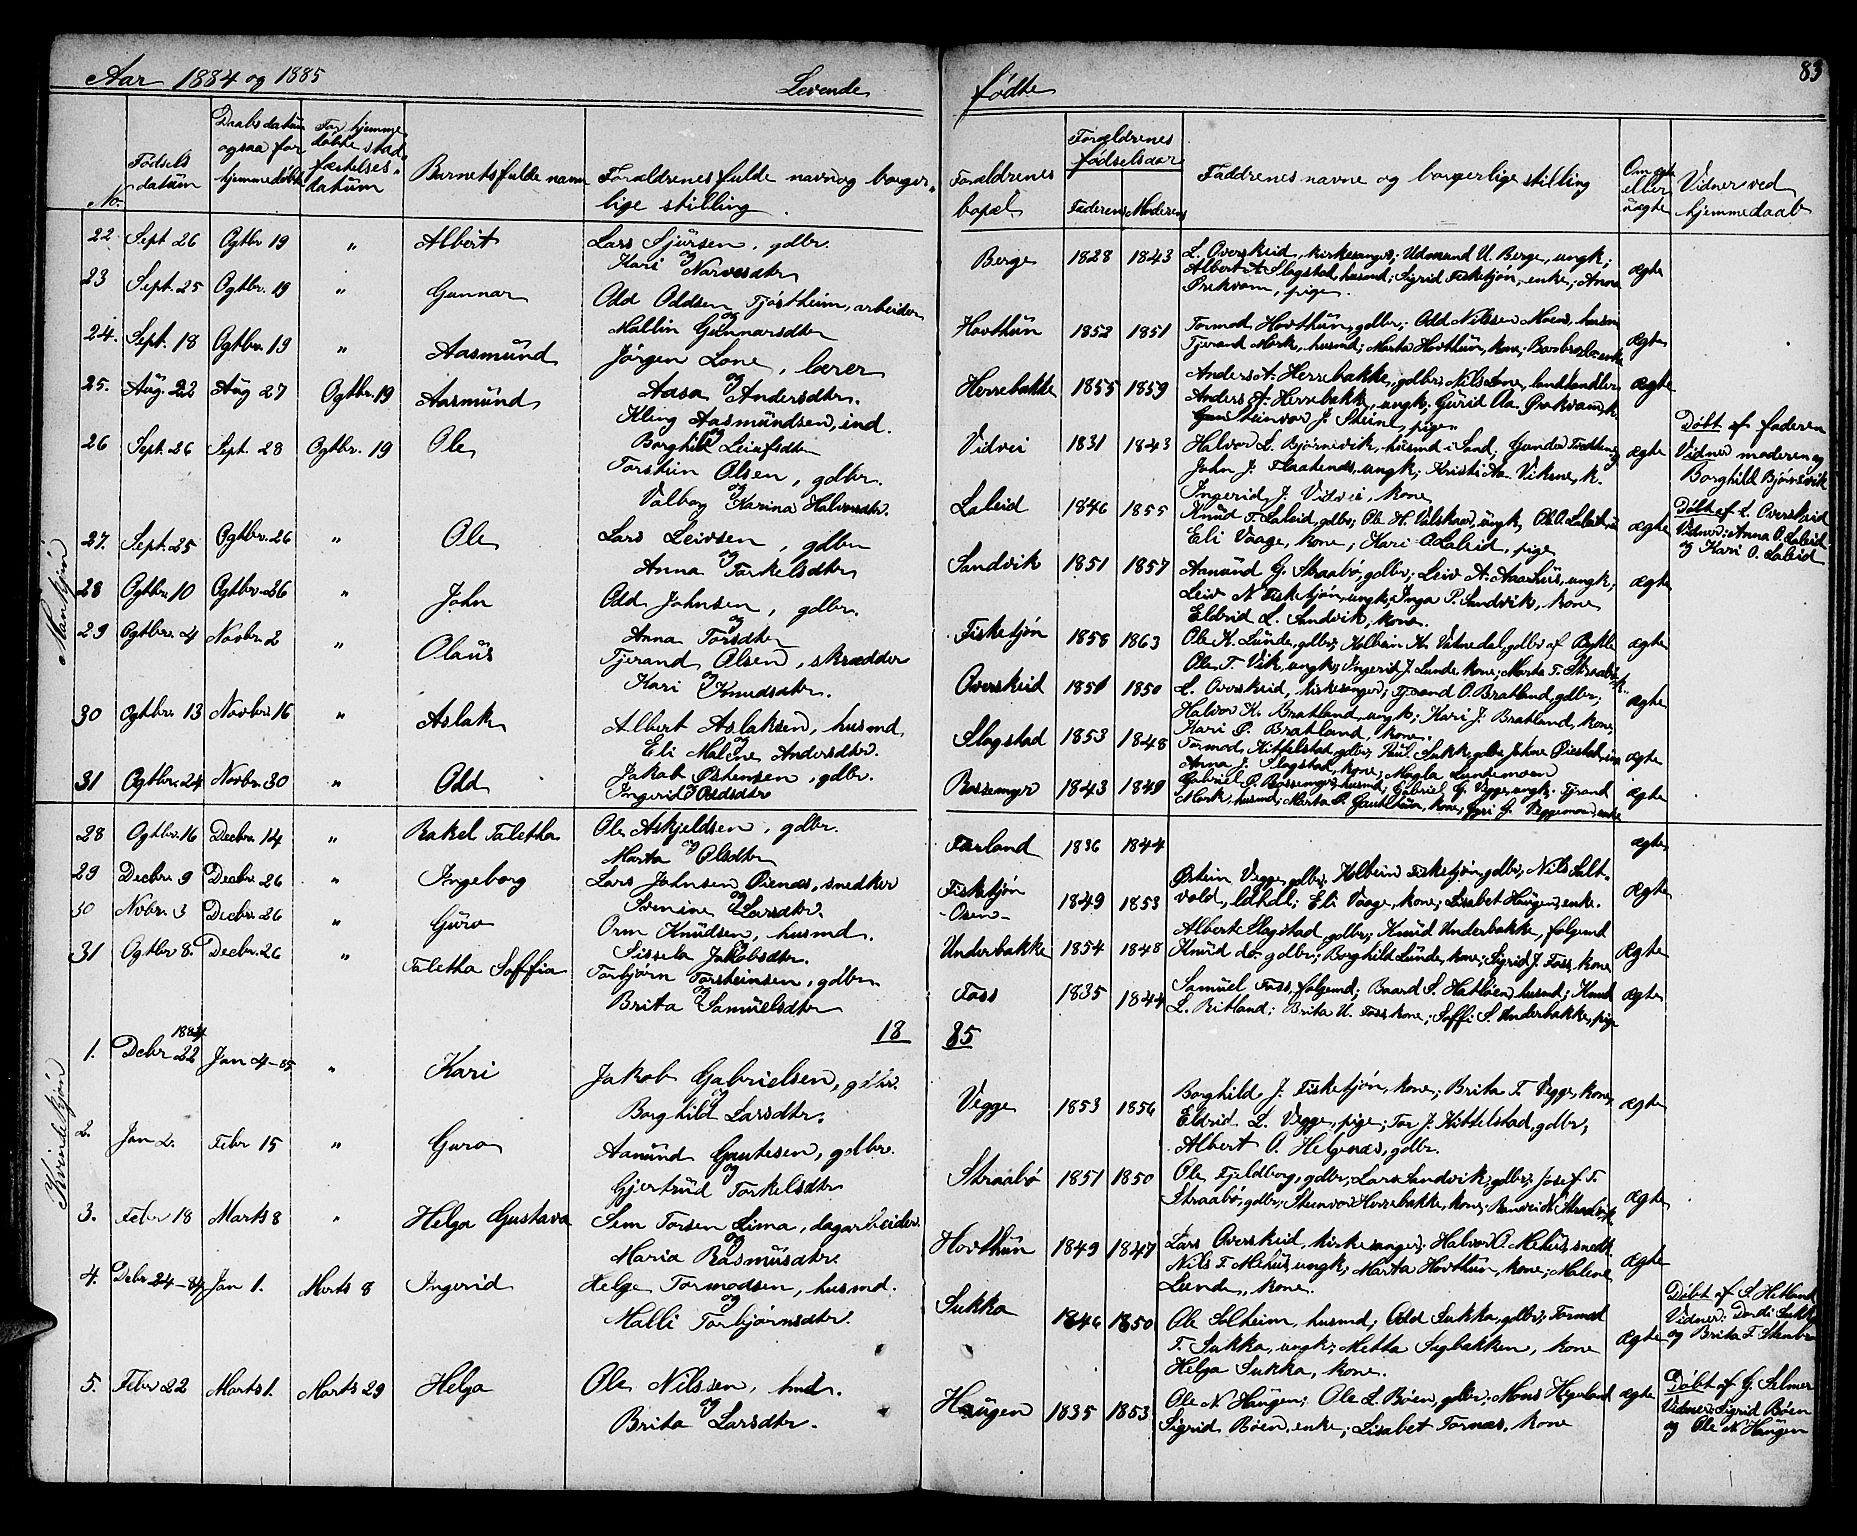 Aar 1884 og 1885 Levende fødte 83
No. Fødsels datum Daabsdatum ogsaa for hjemmedøbte For hjemme døbte stad fæstelses datum Barnets fulde navn Forældrenes fulde navn og borger- lige stilling Forældrenes bopæl Forældrenes fødselsaar Faderens Moderens Faddrenes navne og borgerlige stilling Om ægte eller uægte Vidner ved hjemmedaab
Mankjøn
22. Sept 26 Ogtbr 19 " Albert Lars Sjursen, gdbr. og Kari Narvesdtr Berge 1828 1843 L. Overskeid, kirkesanger; Udmund U. Berge, ungk;
Albert A. Slagstad, husmd; Sigrid Fisketjøn, enke; Anna
Ørekvam, pige. ægte
23 Sept. 25 Ogtbr. 19 " Gunnar Odd Oddsen Tjøstheim, arbeider og Mallin Gunnarsdtr Hovthun 1852 1851 Tormod Hovthun, gdbr; Odd Nilssen Moen, husm
Tjerand Mork, husmd; Marta Hovthun, kone; ægte
24. Sept. 18 Ogtbr. 19 " Aasmund Jørgen Lone, lærer og Aasa Andersdtr. Herrebakke 1855 1859 Anders A. Herrebakke, gdbr; Nils Lone, landhandler
Anders A. Herrebakke, ungk; Gurid Aa. Ørekvam, k.
Steinvor J. Steine, pige ægte
25. Aug. 22 Aug 27 Ogtbr. 19 Aasmund Kleng Aasmundsen, ind. og Borghild Leiufsdtr Vidvei 1831 1843 Halvor L. Bjørnevik, husmd i Sand; Gunder
John J. Flaatenes, ungk; Kristi Aa. Vikene, k.
Ingerid J. Vidvei, kone ægte Døbt af faderen
Vidner moderen og
Borghild Bjørnevik
26 Sept. 26 Sept. 28 Ogtbr. 19 Ole Torstein Olsen, gdbr. og Valborg Karina Halvorsdtr. Laleid 1846 1855 Knud T. Laleid, gdbr; Ole H. Valskaar, ungk, Ole O. Laleid
Eli Vaage, kone; Kari O Laleid, pige ægte Døbt af L. Overskeid
Vidner: Anna O. Laleid
og Kari O. Laleid
27. Sept. 25 Ogtbr. 26 " Ole Lars Leivsen, gdbr og Anna Torkelsdtr Sandvik 1851 1857 Aanund G. Straabø, gdbr; Leiv A. Aaarhus, ungk;
Leiv N Fisketjøn, ungk; Inga P. Sandvik, kone
Eldrid L. Sandvik, kone. ægte
28 Ogtbr. 10 Ogtbr 26 " John Odd Johnsen, gdbr. og Anna Torsdtr Fisketjøn 1858 1863 Ole K. Lunde, gdbr; Kolbein K. Vatnedal, gdbr af Bykle
Ole T. Vik, ungk; Ingerid J. Lunde, kone; Marta T. Straabø, k. ægte
29 Ogtbr. 4 Novbr. 2 " Olaus Tjerand Olsen, skrædder og Kari Knudsdtr. Overskeid 1851 1850 L. Overskeid, kirkesanger; Tjerand O. Bratland, gdbr;
Halvor K. Bratland, ungk; Kari J. Bratland, kone,
Kari O. Bratland, kone. ægte
30 Ogtbr. 13 Novbr. 16 " Aslak Albert Aslaksen, husmd. og Eli Malene Andersdtr. Slagstad 1853 1848 Tormod Kittelstad, gdbr; Poul Sukk, gdbr;
Anna J. Slagstad, kone; Magla Lundemoen ægte
31 Ogtbr. 24 Novbr. 30 " Odd Jakob Østensen, gdbr. og Ingerid Oddsdtr Rossemyr 1843 1849 Gabriel O. Rossemyr, husmd; Gabriel G. Vegge, ungk; Tjerand
Mork, husmd; Marta P. Gautethun, kone; Gyri G. Veggemoen, enke ægte
Kvindekjøn
28 Ogtbr. 16 Decbr. 14 " Rakel Taletha Ole Askjeldsen, gdbr. og Marta Olsdtr Førland 1836 1844 ægte
29 Decbr. 9 Decbr. 26 " Ingeborg Lars Johnsen Øienes, snedker og Severine Larsdtr. Fisketjøn -Osen- 1849 1853 Østein Vegge, gdbr; Kolbein Fisketjøn, gdbr; Nils Salt-
vold, ldhdl; Eli Vaage, kone; Lisabet Haugen, enke. ægte
30 Novbr. 3 Decbr. 26 " Guro Orm Knudsen, husmd. og Sissela Jakobsdtr. Underbakke 1854 1848 Albert Slagstad, gdbr; Knud Underbakke, følgemd
Knud do. gdbr; Borghild Lunde, kone; Sigrid J. Foss, kone Ægte
31 Ogtbr 8. Decbr. 26 " Taletha Soffia Torbjørn Torsteinsen, gdbr og Brita Samuelsdtr Foss 1835 1844 Samuel Foss, følgemd; Baard S. Hatløen, husmd; Knud
L. Ritland; Brita U. Foss, kone; Soffi S. Underbakke, pige ægte
18 85
1. Debr 1884 22 Jan 4-85 " Kari Jakob Gabrielsen, gdbr. og Borghild Larsdtr. Vegge 1853 1856 Borghild J. Fisketjøn, kone; Brita T. Vegge, kone,
Eldrid L. Vegge, pige; Tor J. Kittelstad, gdbr;
Albert O. Helgenæs, gdbr. ægte
2. Jan 2. Febr 15 " Guro Aanund Gautesen, gdbr. og Gjertrud Torkelsdtr Straabø 1851 1850 Ole Fjeldberg, gdbr; Lars Sandvik, gdbr; Josef T.
Straabø, gdbr; Steinvor Herrebakke, kone; ægte
3. Febr 18 Marts 8 " Helga Gustava Sem Torsen Lima, dagarbeider. og Maria Rasmusdtr. Hovthun 1849 1847 Lars Overskeid, kirkesanger; Halvor O. Mehus, snedk.
Nils T. Mehus, ungk; Marta Hovthun, kone; Malene
Lunde, kone. Ægte
4. Debr 24-84 Jan 1. Marts 8 Ingerid Helge Tormodsen, husmd. og Malli Torbjørnsdtr. Sukka 1846 1850 Ole Solheim, husmd; Odd Sukka, gdbr; Tormod
T. Sukka, ungk; Metta Sigbakken, kone
Helga Sukka, kone. Ægte Døbt af S. Hetland
Vidner: Dordi Sukka
og Brita T.
5. Febr 22 Marts 1. Marts 29 Helga Ole Nilssen, hmd. og Brita Larsdtr. Haugen 1835 1853 Ole N. Haugen; Ole L. Bøen, gdbr; Mons Høgeland
Sigrid Bøen, enke; Lisabet Tornæs, kone ægte Døbt af G. Selmer
Vidner: Sigrid Bøen
og Ole N. Haugen